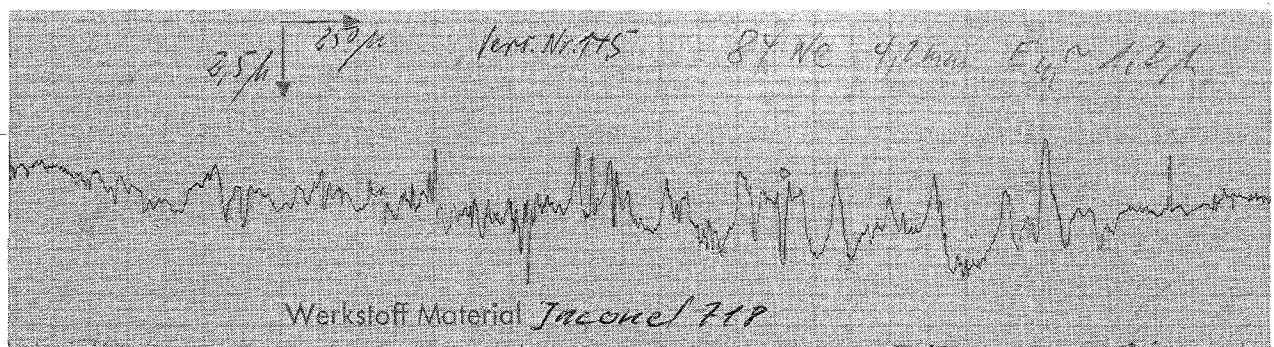 250µ Vers.Nr.145 84 We 4,2mm E ~ 1,2µ
2,5µ
Werkstoff Material Inconel 718